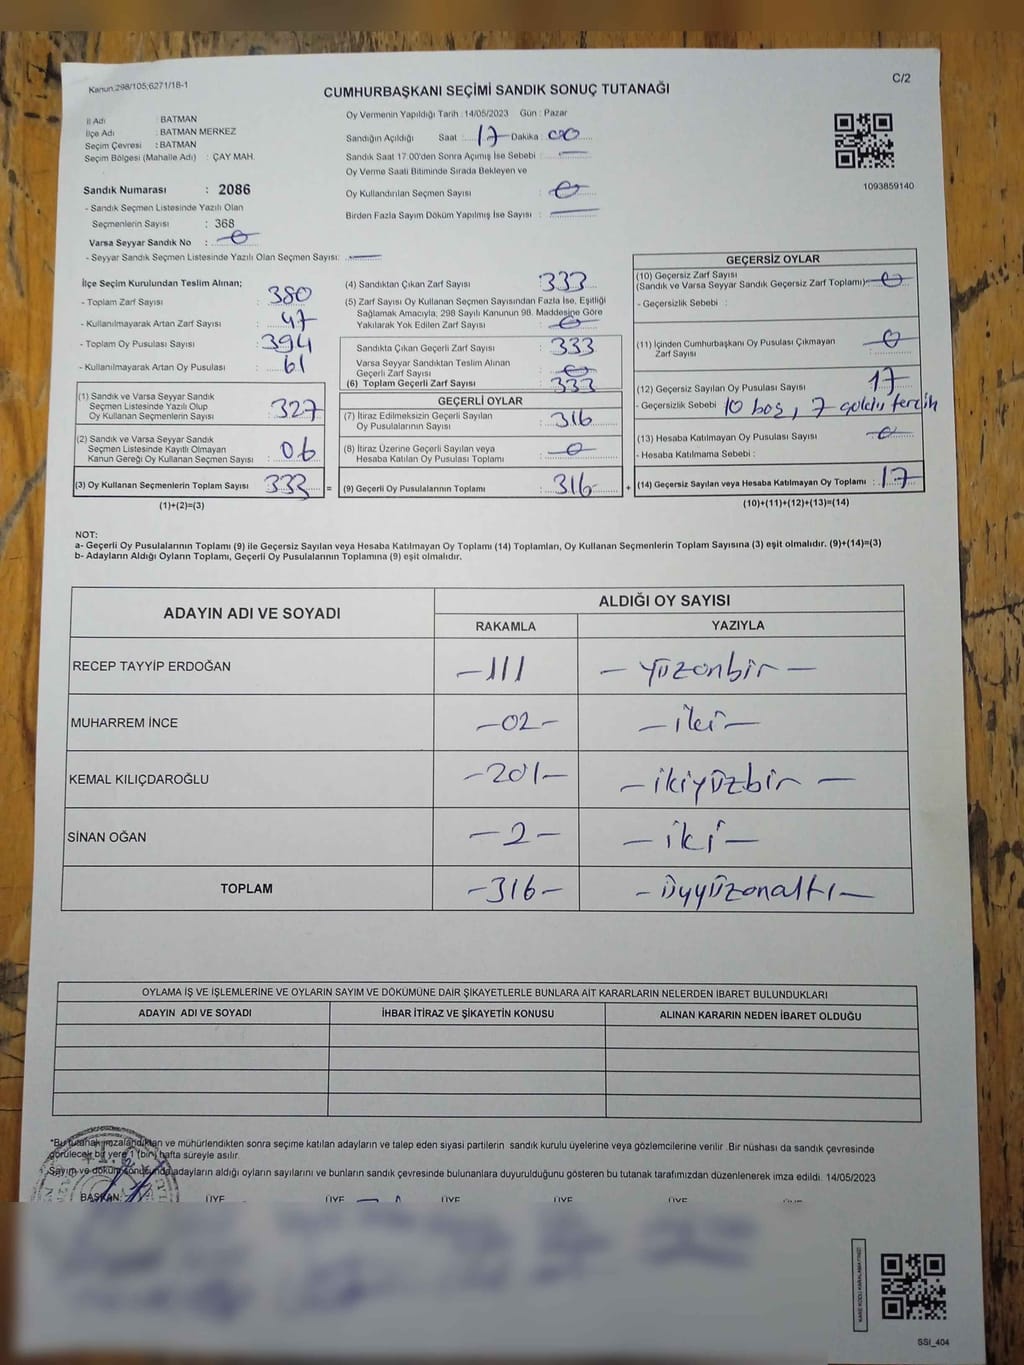 Kanun:298/105;6271/18-1
CUMHURBAŞKANI SEÇİMİ SANDIK SONUÇ TUTANAĞI
C/2
İl Adı : BATMAN
İlçe Adı : BATMAN MERKEZ
Seçim Çevresi : BATMAN
Seçim Bölgesi (Mahalle Adı) : ÇAY MAH.
Sandık Numarası : 2086
- Sandık Seçmen Listesinde Yazılı Olan
Seçmenlerin Sayısı : 368
Varsa Seyyar Sandık No : 0
- Seyyar Sandık Seçmen Listesinde Yazılı Olan Seçmen Sayısı: —
Oy Vermenin Yapıldığı Tarih :14/05/2023 Gün : Pazar
Sandığın Açıldığı Saat : 17 Dakika : 00
Sandık Saat 17.00'den Sonra Açımış İse Sebebi : —
Oy Verme Saati Bitiminde Sırada Bekleyen ve
Oy Kullandırılan Seçmen Sayısı : 0
Birden Fazla Sayım Döküm Yapılmış İse Sayısı : —
1093859140
İlçe Seçim Kurulundan Teslim Alınan;
- Toplam Zarf Sayısı : 380
- Kullanılmayarak Artan Zarf Sayısı : 47
- Toplam Oy Pusulası Sayısı : 394
- Kullanılmayarak Artan Oy Pusulası : 61
(1) Sandık ve Varsa Seyyar Sandık
Seçmen Listesinde Yazılı Olup
Oy Kullanan Seçmenlerin Sayısı : 327
(2) Sandık ve Varsa Seyyar Sandık
Seçmen Listesinde Kayıtlı Olmayan
Kanun Gereği Oy Kullanan Seçmen Sayısı : 06
(3) Oy Kullanan Seçmenlerin Toplam Sayısı : 333 =
(1)+(2)=(3)
(4) Sandıktan Çıkan Zarf Sayısı : 333
(5) Zarf Sayısı Oy Kullanan Seçmen Sayısından Fazla İse, Eşitliği
Sağlamak Amacıyla, 298 Sayılı Kanunun 98. Maddesine Göre
Yakılarak Yok Edilen Zarf Sayısı : 0
Sandıkta Çıkan Geçerli Zarf Sayısı : 333
Varsa Seyyar Sandıktan Teslim Alınan
Geçerli Zarf Sayısı : 0
(6) Toplam Geçerli Zarf Sayısı : 333
GEÇERLİ OYLAR
(7) İtiraz Edilmeksizin Geçerli Sayılan
Oy Pusulalarının Sayısı : 316
(8) İtiraz Üzerine Geçerli Sayılan veya
Hesaba Katılan Oy Pusulası Toplamı : 0
(9) Geçerli Oy Pusulalarının Toplamı : 316 +
GEÇERSİZ OYLAR
(10) Geçersiz Zarf Sayısı
(Sandık ve Varsa Seyyar Sandık Geçersiz Zarf Toplamı) : 0
- Geçersizlik Sebebi :
(11) İçinden Cumhurbaşkanı Oy Pusulası Çıkmayan
Zarf Sayısı : 0
(12) Geçersiz Sayılan Oy Pusulası Sayısı : 17
- Geçersizlik Sebebi : 10 boş, 7 çoklu tercih
(13) Hesaba Katılmayan Oy Pusulası Sayısı : 0
- Hesaba Katılmama Sebebi :
(14) Geçersiz Sayılan veya Hesaba Katılmayan Oy Toplamı : 17
(10)+(11)+(12)+(13)=(14)
NOT:
a- Geçerli Oy Pusulalarının Toplamı (9) ile Geçersiz Sayılan veya Hesaba Katılmayan Oy Toplamı (14) Toplamları, Oy Kullanan Seçmenlerin Toplam Sayısına (3) eşit olmalıdır. (9)+(14)=(3)
b- Adayların Aldığı Oyların Toplamı, Geçerli Oy Pusulalarının Toplamına (9) eşit olmalıdır.
ADAYIN ADI VE SOYADI ALDIĞI OY SAYISI
RAKAMLA YAZIYLA
RECEP TAYYİP ERDOĞAN —111 — yüzonbir —
MUHARREM İNCE —02— — iki —
KEMAL KILIÇDAROĞLU —201— — ikiyüzbir —
SİNAN OĞAN —2— — iki —
TOPLAM —316— — üyyüzonaltı —
OYLAMA İŞ VE İŞLEMLERİNE VE OYLARIN SAYIM VE DÖKÜMÜNE DAİR ŞİKAYETLERLE BUNLARA AİT KARARLARIN NELERDEN İBARET BULUNDUKLARI
ADAYIN ADI VE SOYADI İHBAR İTİRAZ VE ŞİKAYETİN KONUSU ALINAN KARARIN NEDEN İBARET OLDUĞU
*Bu tutanak imzalandıktan ve mühürlendikten sonra seçime katılan adayların ve talep eden siyasi partilerin sandık kurulu üyelerine veya gözlemcilerine verilir. Bir nüshası da sandık çevresinde
görülecek bir yere 1 (bir) hafta süreyle asılır.
Sayım ve döküm sonucunda adayların aldığı oyların sayılarını ve bunların sandık çevresinde bulunanlara duyurulduğunu gösteren bu tutanak tarafımızdan düzenlenerek imza edildi. 14/05/2023
BAŞKAN ÜYE ÜYE ÜYE ÜYE ÜYE
KARE KODU KARALAMAYINIZ!
SSI_404